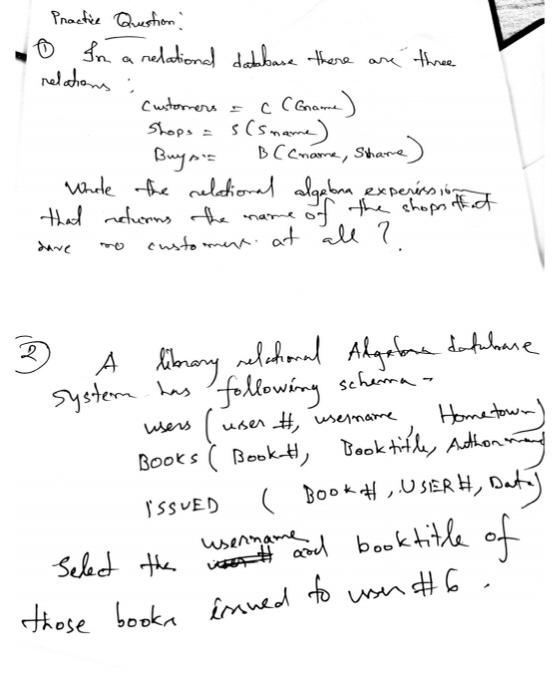 Practice Question:
① In a relational database there are three
relations :
Customers = C (Cname)
Shops = S (Sname)
Buys = B (Cname, Sname)
Write the relational algebra experission
that returns the name of the shops that
have no customers at all ?
② A library relational Algebra database
system has following schema -
users (user #, username, Hometown)
BOOKS (Book#, Booktitle, Authorname)
ISSUED (Book#, USER#, Date)
Select the username and booktitle of
those books issued to user #6.